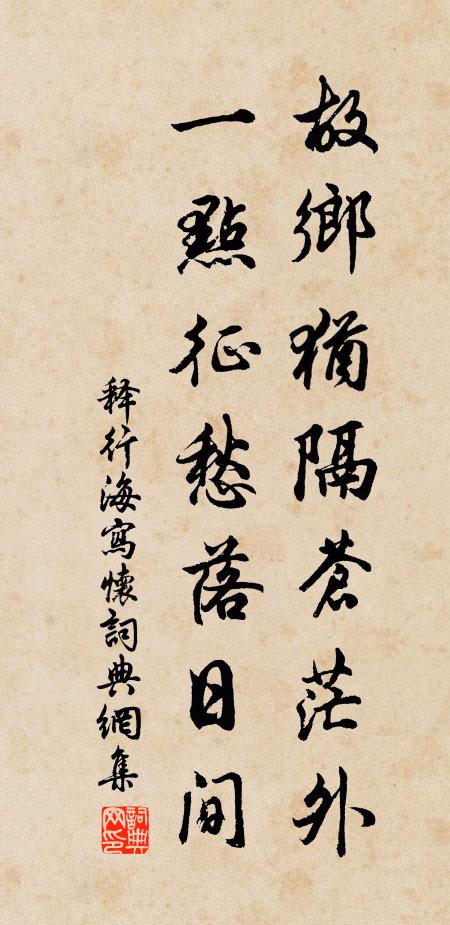 故鄉猶隔蒼茫外
一點征愁落日間
释行海寫懷詞典網集
詞典網印